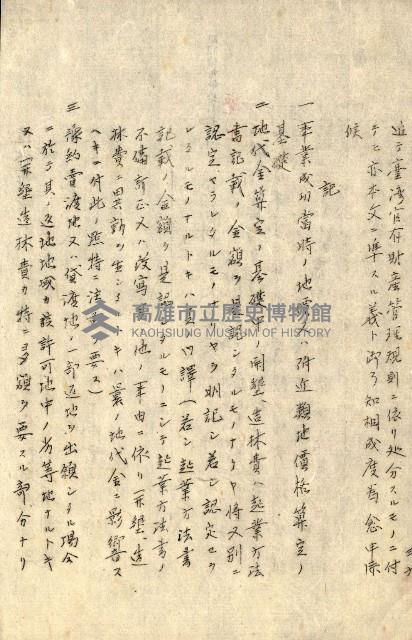 追テ臺湾官有財産管理規則ニ依リ処分スルモノニ付
テモ亦本文ニ準スル義ト御了知相成度為念申添
候
記
一 事業成功當時ノ地 ハ附近類地價格算定ノ
基礎
二 地代金算定ノ基礎 開墾、造林費ハ起業方法
書記載ノ金額ヲ是認シタルモノナリヤ将又別ニ
認定セラレタルモノナリヤヲ明記シ若シ認定セラ
レタルモノナルトキハ其ノ内譯(若シ起業方法書
記載ノ金額ヲ是認 タルモノニシテ起業方法書
不備訂正又ハ改寫 他ノ事由ニ依リ開墾、造
林費ニ異動ヲ生シ トキハ曩ノ地代金ニ影響ス
ヘキニ付此ノ點特ニ注意ヲ要ス)
三 豫約賣渡地又ハ貸渡地ノ一部返地ヲ出願シタル場合
ニ於テ其ノ返地地域カ該許可地中ノ劣等地ナルトキ
又ハ開墾造林費カ特ニ多額ヲ要スル部分ナリ
高雄市立歷史博物館
KAOHSIUNG MUSEUM OF HISTORY